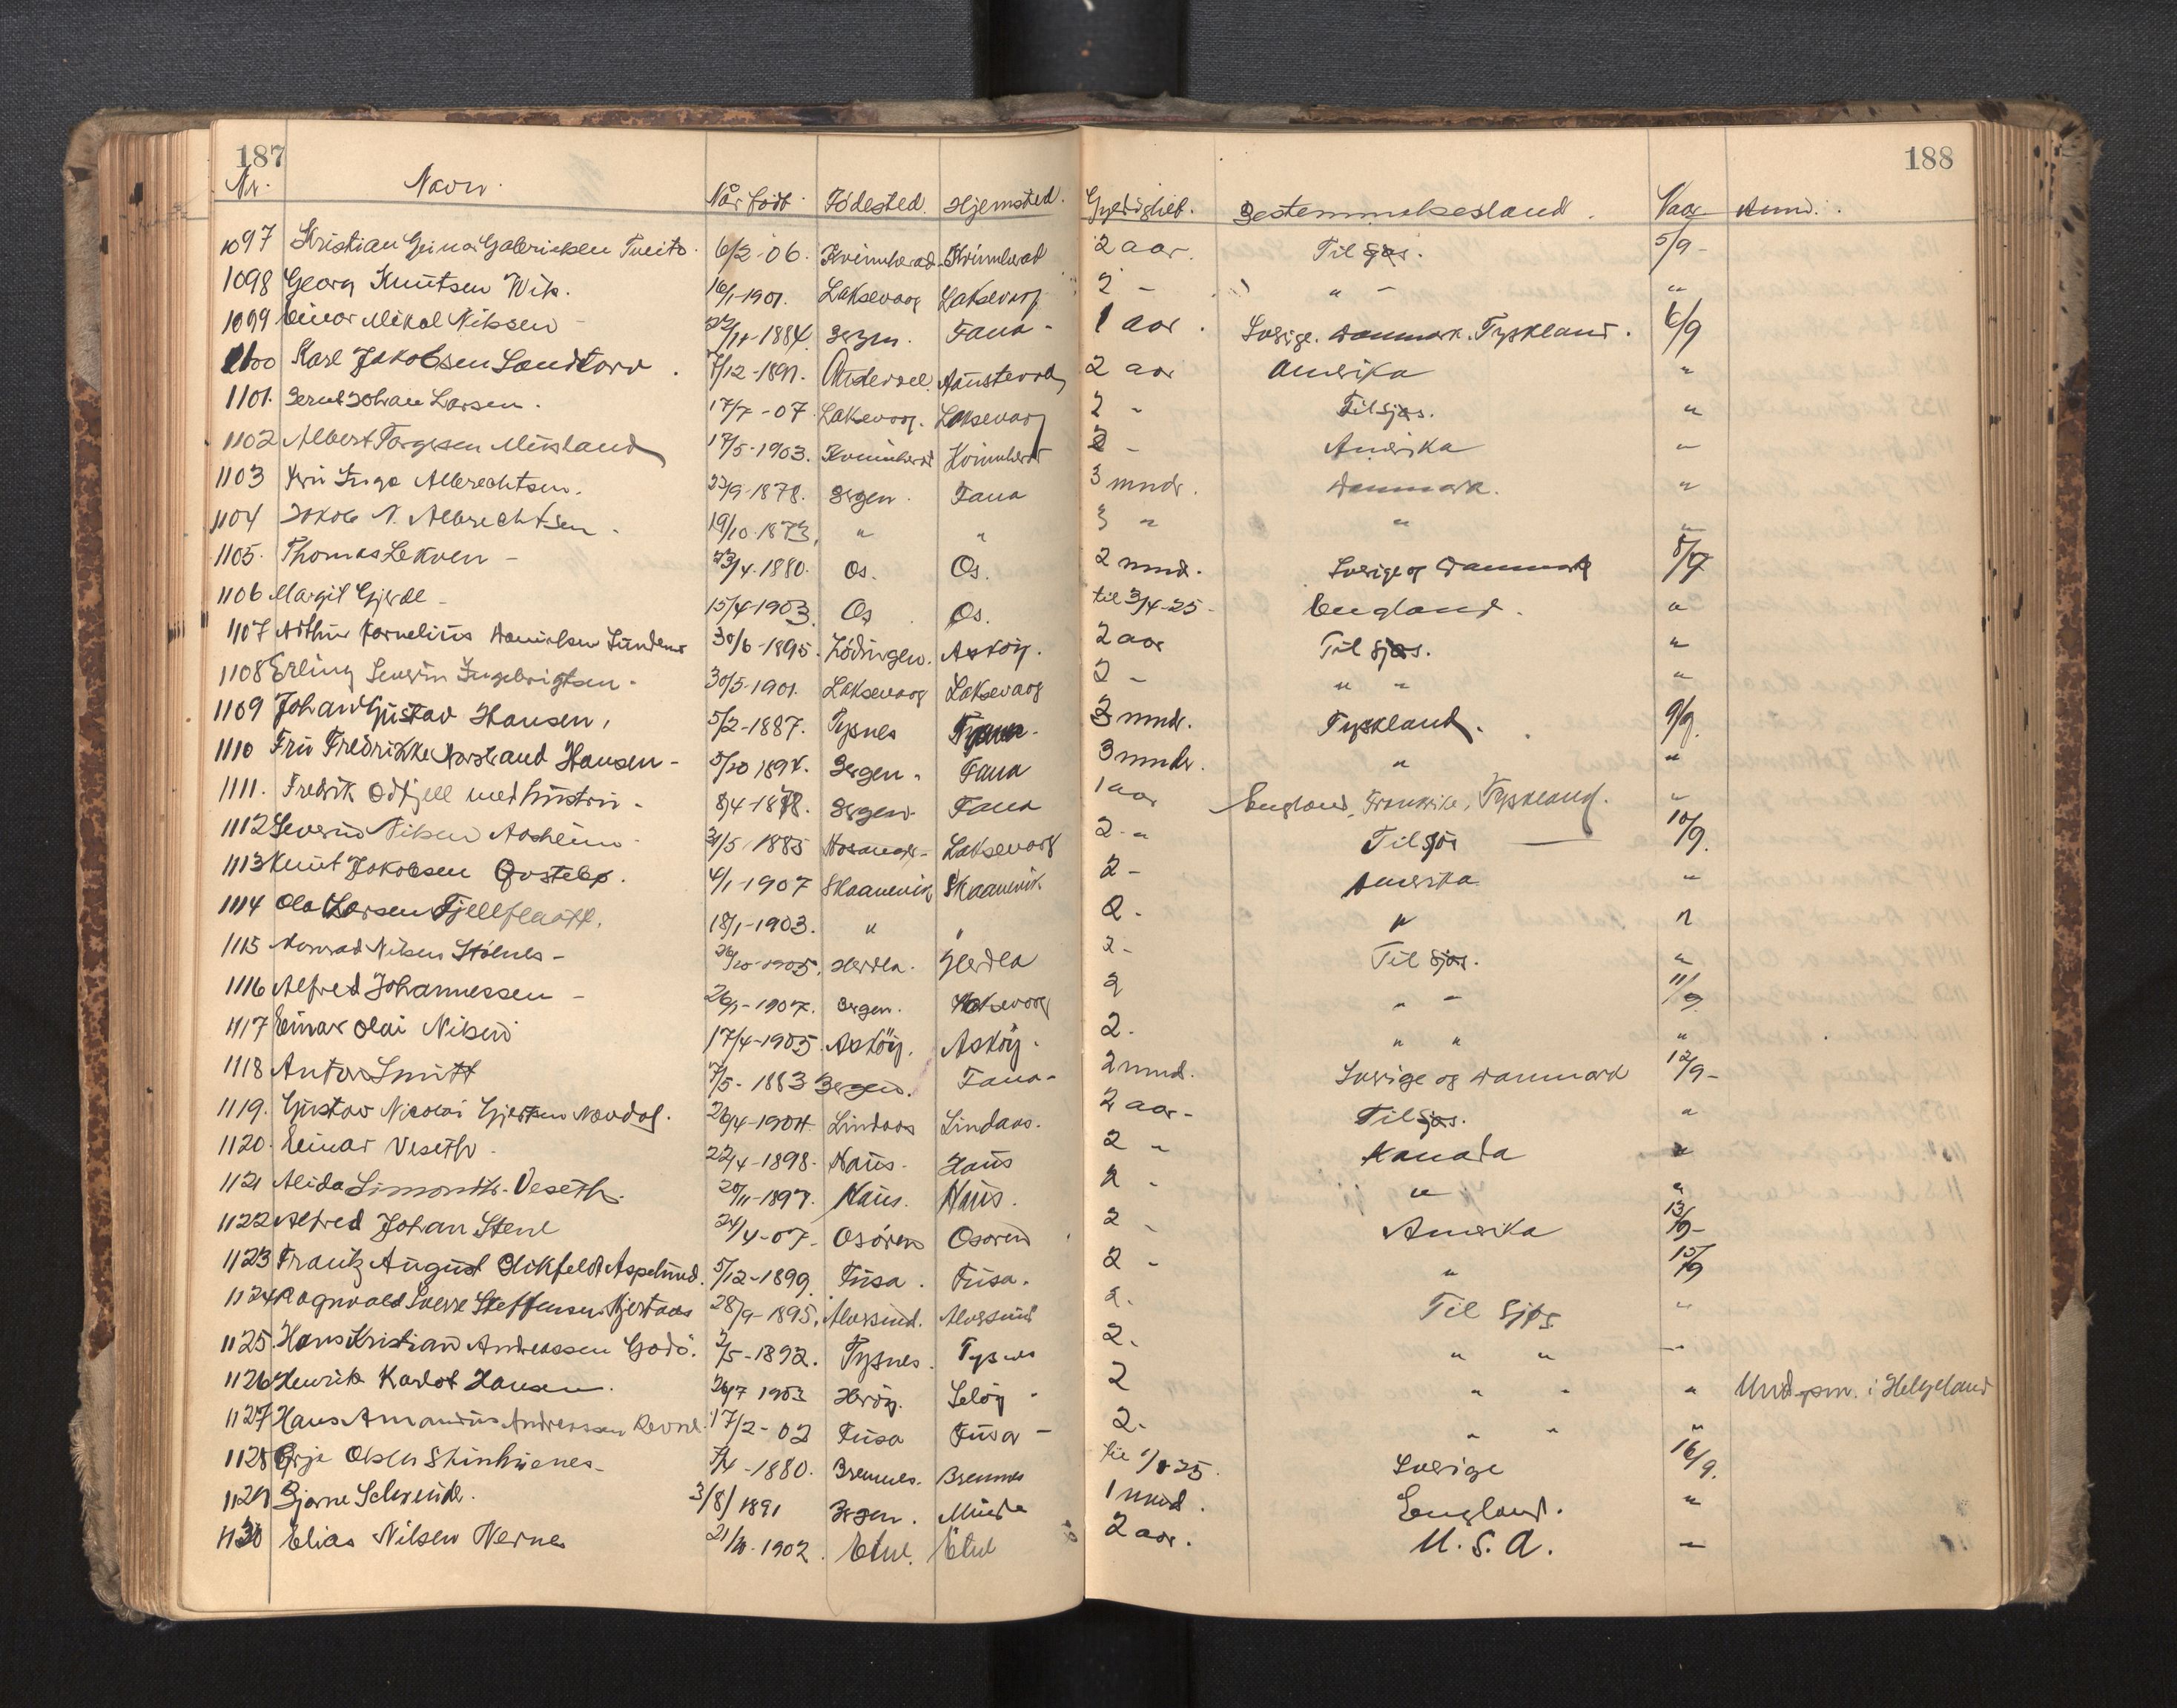 187
188
Nr. Navn. Når født. Fødested. Hjemsted. Gyldighet. Bestemmelsesland. Naar Anm.
1097 Kristian Gabrielsen Tveito. 6/2-06. Kvinnherad Kvinnherad 2 aar. Til sjøs. 5/9-
1098 Georg Knutsen Wik. 16/1-1901. Laksevaag Laksevaag 2 - " - "
1099 Einar Mikal Nilsen 22/11-1884. Bergen. Fana - 1 aar. Sverige. Danmark. Tyskland. 6/9
1100 Karl Jakobsen Sandtorv. 7/12-1891. Austevoll 2 aar Amerika "
1101. Bernt Johan Larsen. 17/7-07. Laksevaag. Laksevaag 2 - Til sjøs. "
1102 Albert Torgersen Musland 17/5-1903. Kvinnherad Kvinnherad 2 - Amerika "
1103 Fru Inga Albrechtsen. 23/9-1878. Bergen. Fana 3 mndr. Danmark. "
1104 Jakob N. Albrechtsen. 19/10-1873. " " 3 " " "
1105. Thomas Lekven - 23/4-1880. Os. Os. 2 mnd. Sverige og Danmark 8/9
1106 Margit Gjerde - 15/4-1903. Os Os. til 3/4-25- England. "
1107 Arthur Kornelius Danielsen 30/6-1895. Lødingen. Askøy. 2 aar Til sjøs. "
1108 Erling Severin Ingebrigtsen. 30/5-1901. Laksevaag Laksevaag 2 - " " "
1109 Johan Gustav Hansen, 5/2-1887. Tysnes 3 mndr. Tyskland. 9/9.
1110 Fru Fredrikke Hansen - 5/10 1894. Bergen. Fana 3 mndr. " "
1111. Fredrik Odfjell med hustru. 8/4-1878. Bergen. Fana 1 aar England, Frankrike, Tyskland. "
1112 Severin Nilsen Aasheim. 31/5 1885 Hosanger - Laksevaag 2 - " Til sjøs 10/9.
1113 Knut Jakobsen 4/1-1907 Skaanevik Skaanevik 2 - Amerika "
1114 Ola Larsen Fjellflaatt. 18/1-1903. " " 2 - " "
1115 Konrad Nilsen Stølnes - 26/10-1905. Herdla. Herdla 2 - Til sjøs. "
1116 Alfred Johannessen - 26/1-1907. Bergen. Laksevaag 2 " - 11/9
1117 Einar Olai Nilsen 17/4-1905. Askøy. Askøy. 2. " " "
1118 Anton Smitt 7/5-1883 Bergen. Fana - 2 mnd. Sverige og Danmark 12/9-
1119. Gustav Nicolai Gjertsen Novdal. 26/4-1904. Lindaas Lindaas. 2 aar - Til sjøs. "
1120. Einar Veseth. 22/4-1898. Haus. Haus 2 " Kanada "
1121 Alida Veseth. 20/11-1897. Haus. Haus. 2 - " "
1122 Alfred Johan Stene 24/4-07- Osøren Osøren 2 - Amerika 13/9-
1123 Frantz August Aspelund. 5/12-1899. Fusa. Fusa. 2 - " 15/9
1124 Ragnvald Sverre Steffensen 28/9-1895. Alversund. Alversund 2. Til sjøs. "
1125. Hans Kristian Andreassen Godø. 2/5-1892. Tysnes. Tysnes 2. " " "
1126 Henrik Karlot Hansen. 26/7 1903 Herøy. Seløy - 2 " " " Und. pm. i Helgeland
1127 Hans Amandus Andreassen 17/2-02 Fusa Fusa - 2. " " "
1128 Olsen 7/4-1880. Bremnes. Bremnes til 1/8 25. Sverige 16/9.
1129 Bjarne Schreiner. 3/8/1891 Bergen. Minde 1 mnd. England. "
1130 Elias Nilsen Nernes 21/10-1902. Etne. Etne 2 aar. U.S.A. "